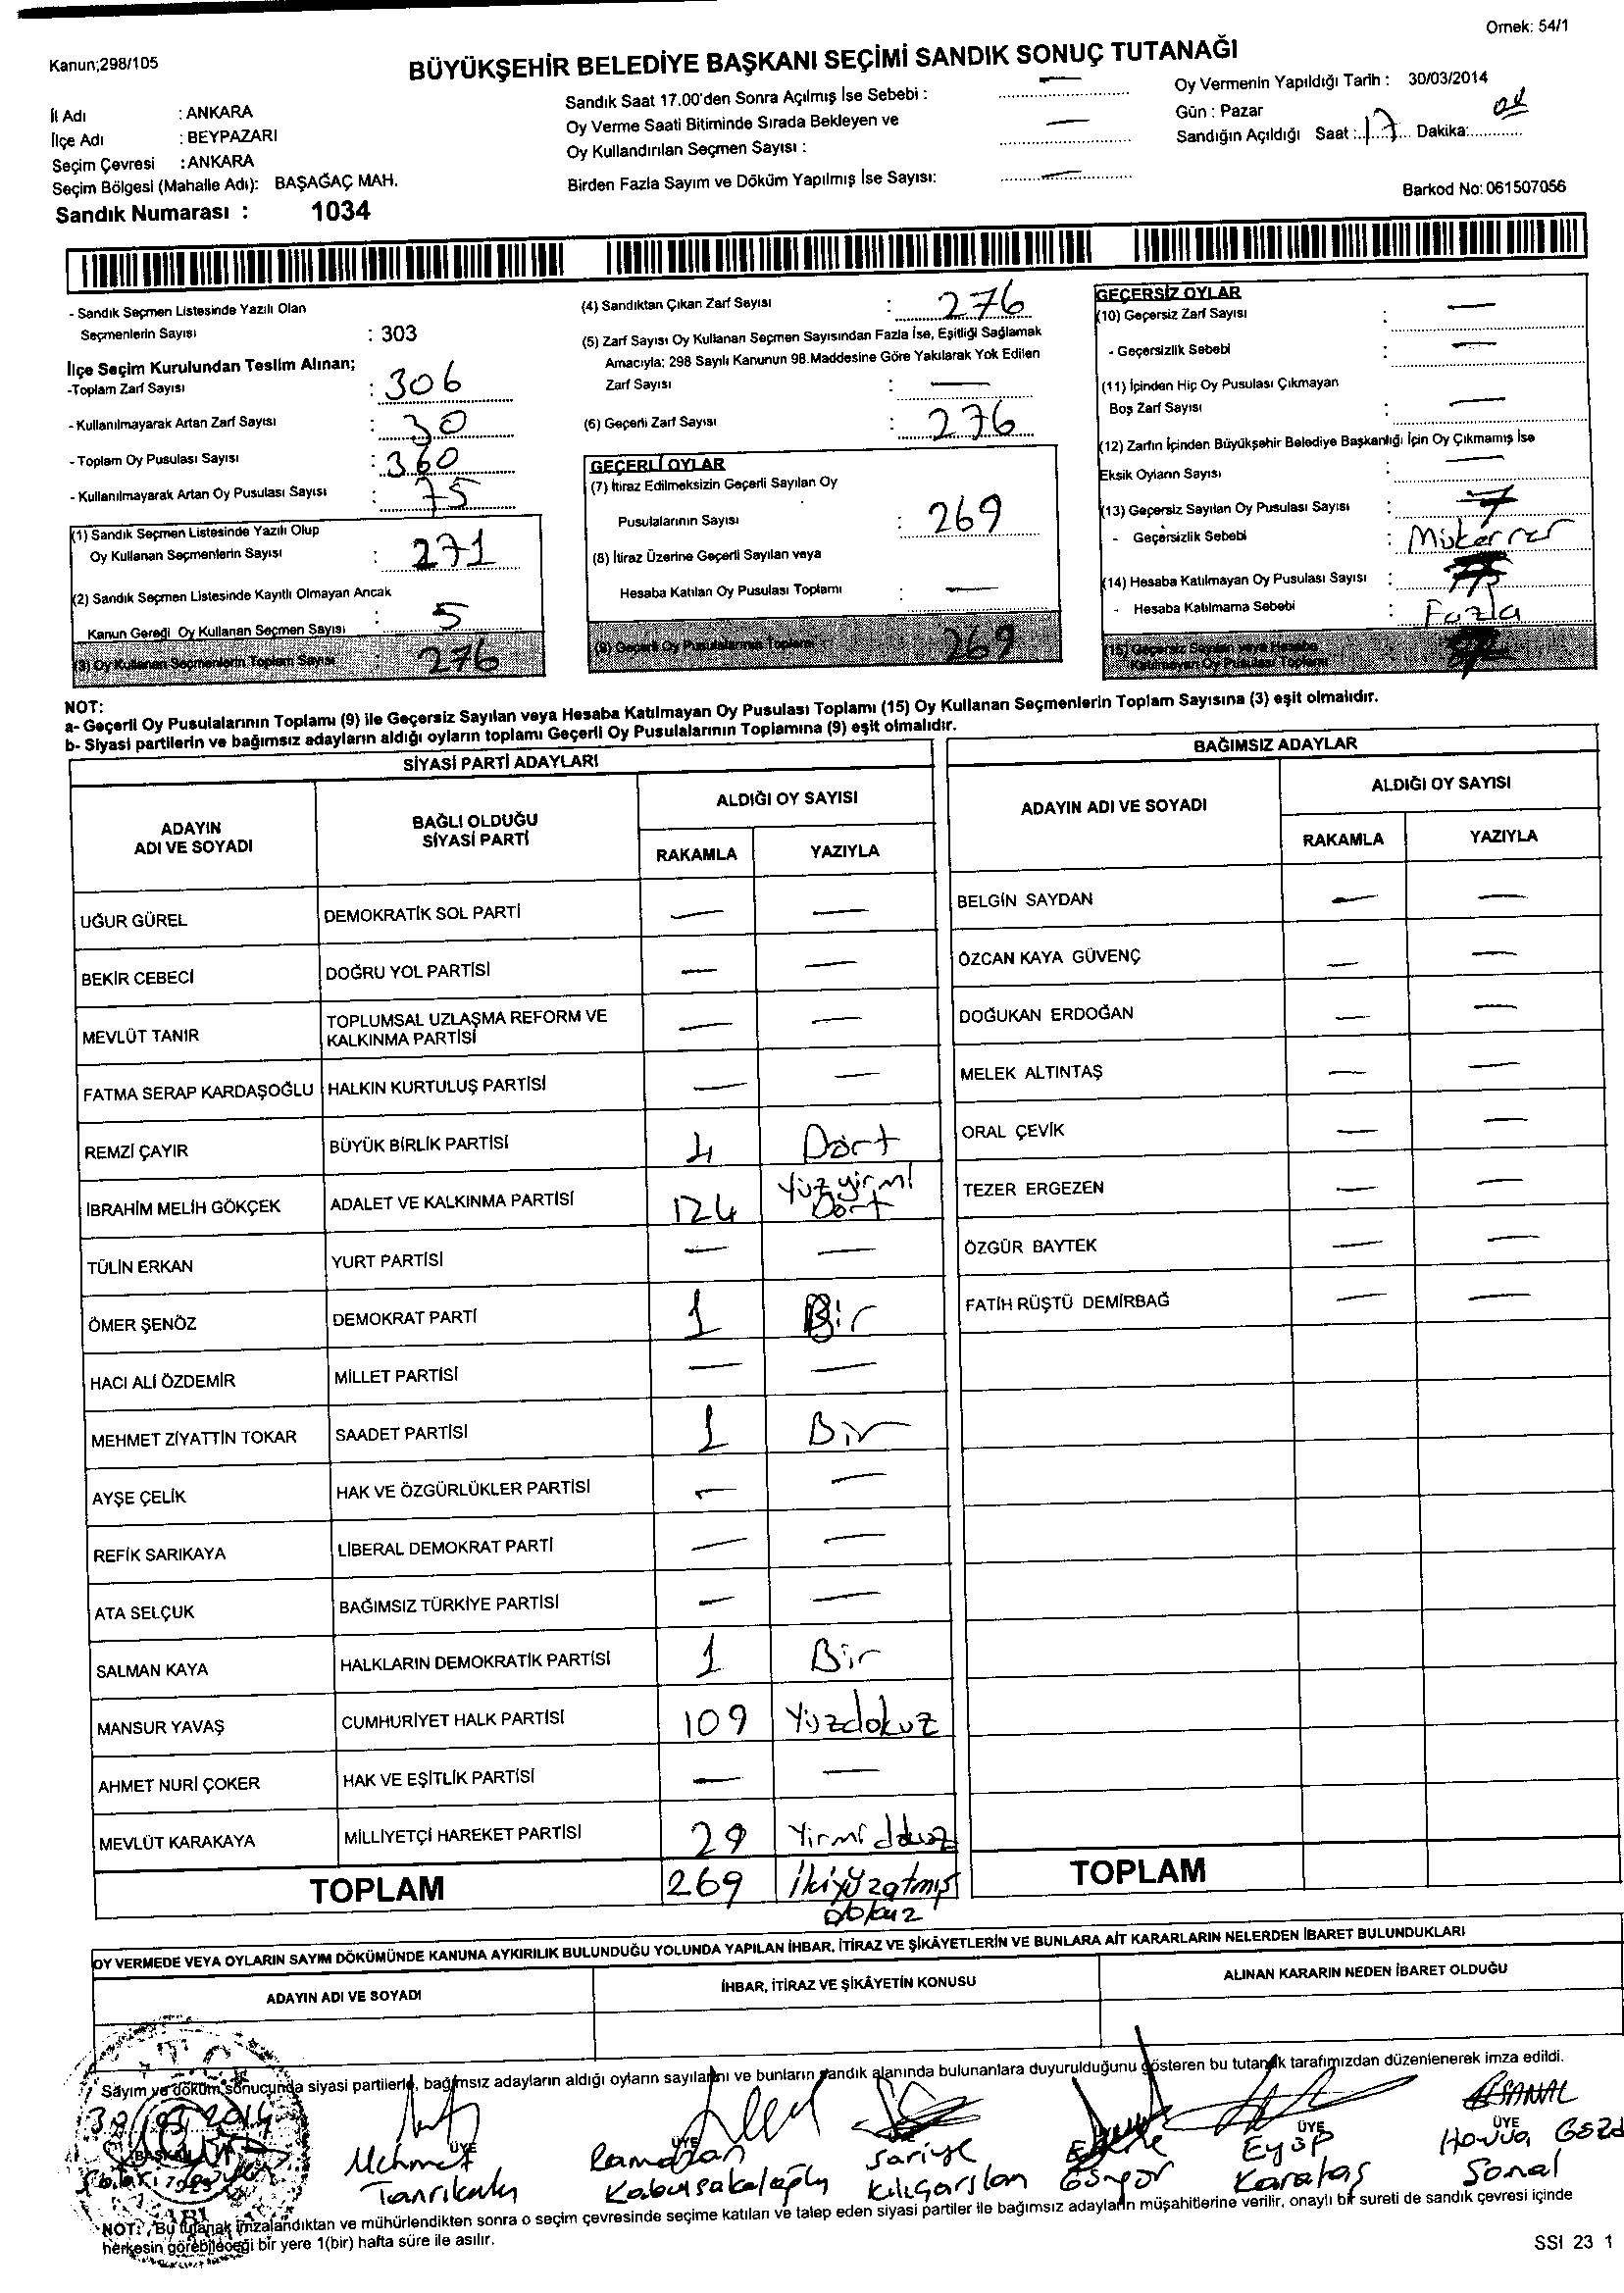 Ornek: 54/1
Kanun;298/105
BÜYÜKŞEHİR BELEDİYE BAŞKANI SEÇİMİ SANDIK SONUÇ TUTANAĞI
İl Adı : ANKARA
İlçe Adı : BEYPAZARI
Seçim Çevresi : ANKARA
Seçim Bölgesi (Mahalle Adı): BAŞAĞAÇ MAH.
Sandık Numarası : 1034
Sandık Saat 17.00'den Sonra Açılmış İse Sebebi : —
Oy Verme Saati Bitiminde Sırada Bekleyen ve
Oy Kullandırılan Seçmen Sayısı : —
Birden Fazla Sayım ve Döküm Yapılmış İse Sayısı: —
Oy Vermenin Yapıldığı Tarih : 30/03/2014
Gün : Pazar
Sandığın Açıldığı Saat : 17 Dakika:
Barkod No: 061507056
- Sandık Seçmen Listesinde Yazılı Olan
Seçmenlerin Sayısı : 303
İlçe Seçim Kurulundan Teslim Alınan;
-Toplam Zarf Sayısı : 306
- Kullanılmayarak Artan Zarf Sayısı : 30
- Toplam Oy Pusulası Sayısı : 360
- Kullanılmayarak Artan Oy Pusulası Sayısı : 75
(1) Sandık Seçmen Listesinde Yazılı Olup
Oy Kullanan Seçmenlerin Sayısı : 271
(2) Sandık Seçmen Listesinde Kayıtlı Olmayan Ancak
Kanun Gereği Oy Kullanan Seçmen Sayısı : 5
(3) Oy Kullanan Seçmenlerin Toplam Sayısı : 276
(4) Sandıktan Çıkan Zarf Sayısı : 276
(5) Zarf Sayısı Oy Kullanan Seçmen Sayısından Fazla İse, Eşitliği Sağlamak
Amacıyla; 298 Sayılı Kanunun 98.Maddesine Göre Yakılarak Yok Edilen
Zarf Sayısı : —
(6) Geçerli Zarf Sayısı : 276
GEÇERLİ OYLAR
(7) İtiraz Edilmeksizin Geçerli Sayılan Oy
Pusulalarının Sayısı : 269
(8) İtiraz Üzerine Geçerli Sayılan veya
Hesaba Katılan Oy Pusulası Toplamı : —
(9) Geçerli Oy Pusulalarının Toplamı : 269
GEÇERSİZ OYLAR
(10) Geçersiz Zarf Sayısı : —
- Geçersizlik Sebebi : —
(11) İçinden Hiç Oy Pusulası Çıkmayan
Boş Zarf Sayısı : —
(12) Zarfın İçinden Büyükşehir Belediye Başkanlığı İçin Oy Çıkmamış İse
Eksik Oyların Sayısı : —
(13) Geçersiz Sayılan Oy Pusulası Sayısı : 7
- Geçersizlik Sebebi : Mükerrer
(14) Hesaba Katılmayan Oy Pusulası Sayısı :
- Hesaba Katılmama Sebebi : Fazla
(15) Geçersiz Sayılan veya Hesaba
Katılmayan Oy Pusulası Toplamı
NOT:
a- Geçerli Oy Pusulalarının Toplamı (9) ile Geçersiz Sayılan veya Hesaba Katılmayan Oy Pusulası Toplamı (15) Oy Kullanan Seçmenlerin Toplam Sayısına (3) eşit olmalıdır.
b- Siyasi partilerin ve bağımsız adayların aldığı oyların toplamı Geçerli Oy Pusulalarının Toplamına (9) eşit olmalıdır.
SİYASİ PARTİ ADAYLARI
ADAYIN ADI VE SOYADI BAĞLI OLDUĞU SİYASİ PARTİ ALDIĞI OY SAYISI
RAKAMLA YAZIYLA
UĞUR GÜREL DEMOKRATİK SOL PARTİ — —
BEKİR CEBECİ DOĞRU YOL PARTİSİ — —
MEVLÜT TANIR TOPLUMSAL UZLAŞMA REFORM VE KALKINMA PARTİSİ — —
FATMA SERAP KARDAŞOĞLU HALKIN KURTULUŞ PARTİSİ — —
REMZİ ÇAYIR BÜYÜK BİRLİK PARTİSİ 4 Dört
İBRAHİM MELİH GÖKÇEK ADALET VE KALKINMA PARTİSİ 124 Yüzyirmi Dört
TÜLİN ERKAN YURT PARTİSİ — —
ÖMER ŞENÖZ DEMOKRAT PARTİ 1 Bir
HACI ALİ ÖZDEMİR MİLLET PARTİSİ — —
MEHMET ZİYATTİN TOKAR SAADET PARTİSİ 1 Bir
AYŞE ÇELİK HAK VE ÖZGÜRLÜKLER PARTİSİ — —
REFİK SARIKAYA LİBERAL DEMOKRAT PARTİ — —
ATA SELÇUK BAĞIMSIZ TÜRKİYE PARTİSİ — —
SALMAN KAYA HALKLARIN DEMOKRATİK PARTİSİ 1 Bir
MANSUR YAVAŞ CUMHURİYET HALK PARTİSİ 109 Yüzdokuz
AHMET NURİ ÇOKER HAK VE EŞİTLİK PARTİSİ — —
MEVLÜT KARAKAYA MİLLİYETÇİ HAREKET PARTİSİ 29 Yirmi dokuz
TOPLAM 269 İkiyüzatmış dokuz
BAĞIMSIZ ADAYLAR
ADAYIN ADI VE SOYADI ALDIĞI OY SAYISI
RAKAMLA YAZIYLA
BELGİN SAYDAN — —
ÖZCAN KAYA GÜVENÇ — —
DOĞUKAN ERDOĞAN — —
MELEK ALTINTAŞ — —
ORAL ÇEVİK — —
TEZER ERGEZEN — —
ÖZGÜR BAYTEK — —
FATİH RÜŞTÜ DEMİRBAĞ — —
TOPLAM
OY VERMEDE VEYA OYLARIN SAYIM DÖKÜMÜNDE KANUNA AYKIRILIK BULUNDUĞU YOLUNDA YAPILAN İHBAR, İTİRAZ VE ŞİKÂYETLERİN VE BUNLARA AİT KARARLARIN NELERDEN İBARET BULUNDUKLARI
ADAYIN ADI VE SOYADI İHBAR, İTİRAZ VE ŞİKÂYETİN KONUSU ALINAN KARARIN NEDEN İBARET OLDUĞU
Sayım ve döküm sonucunda siyasi partilerle, bağımsız adayların aldığı oyların sayılarını ve bunların sandık alanında bulunanlara duyurulduğunu gösteren bu tutanak tarafımızdan düzenlenerek imza edildi.
BAŞKAN ÜYE ÜYE ÜYE ÜYE
Mehmet Tanrıkulu
Ramazan
Sariye Kılıçarslan
Güngör
Eyüp Karataş
Havva Sonal
NOT: Bu tutanak imzalandıktan ve mühürlendikten sonra o seçim çevresinde seçime katılan ve talep eden siyasi partiler ile bağımsız adayların müşahitlerine verilir, onaylı bir sureti de sandık çevresi içinde
herkesin görebileceği bir yere 1(bir) hafta süre ile asılır.
SSI 23 1